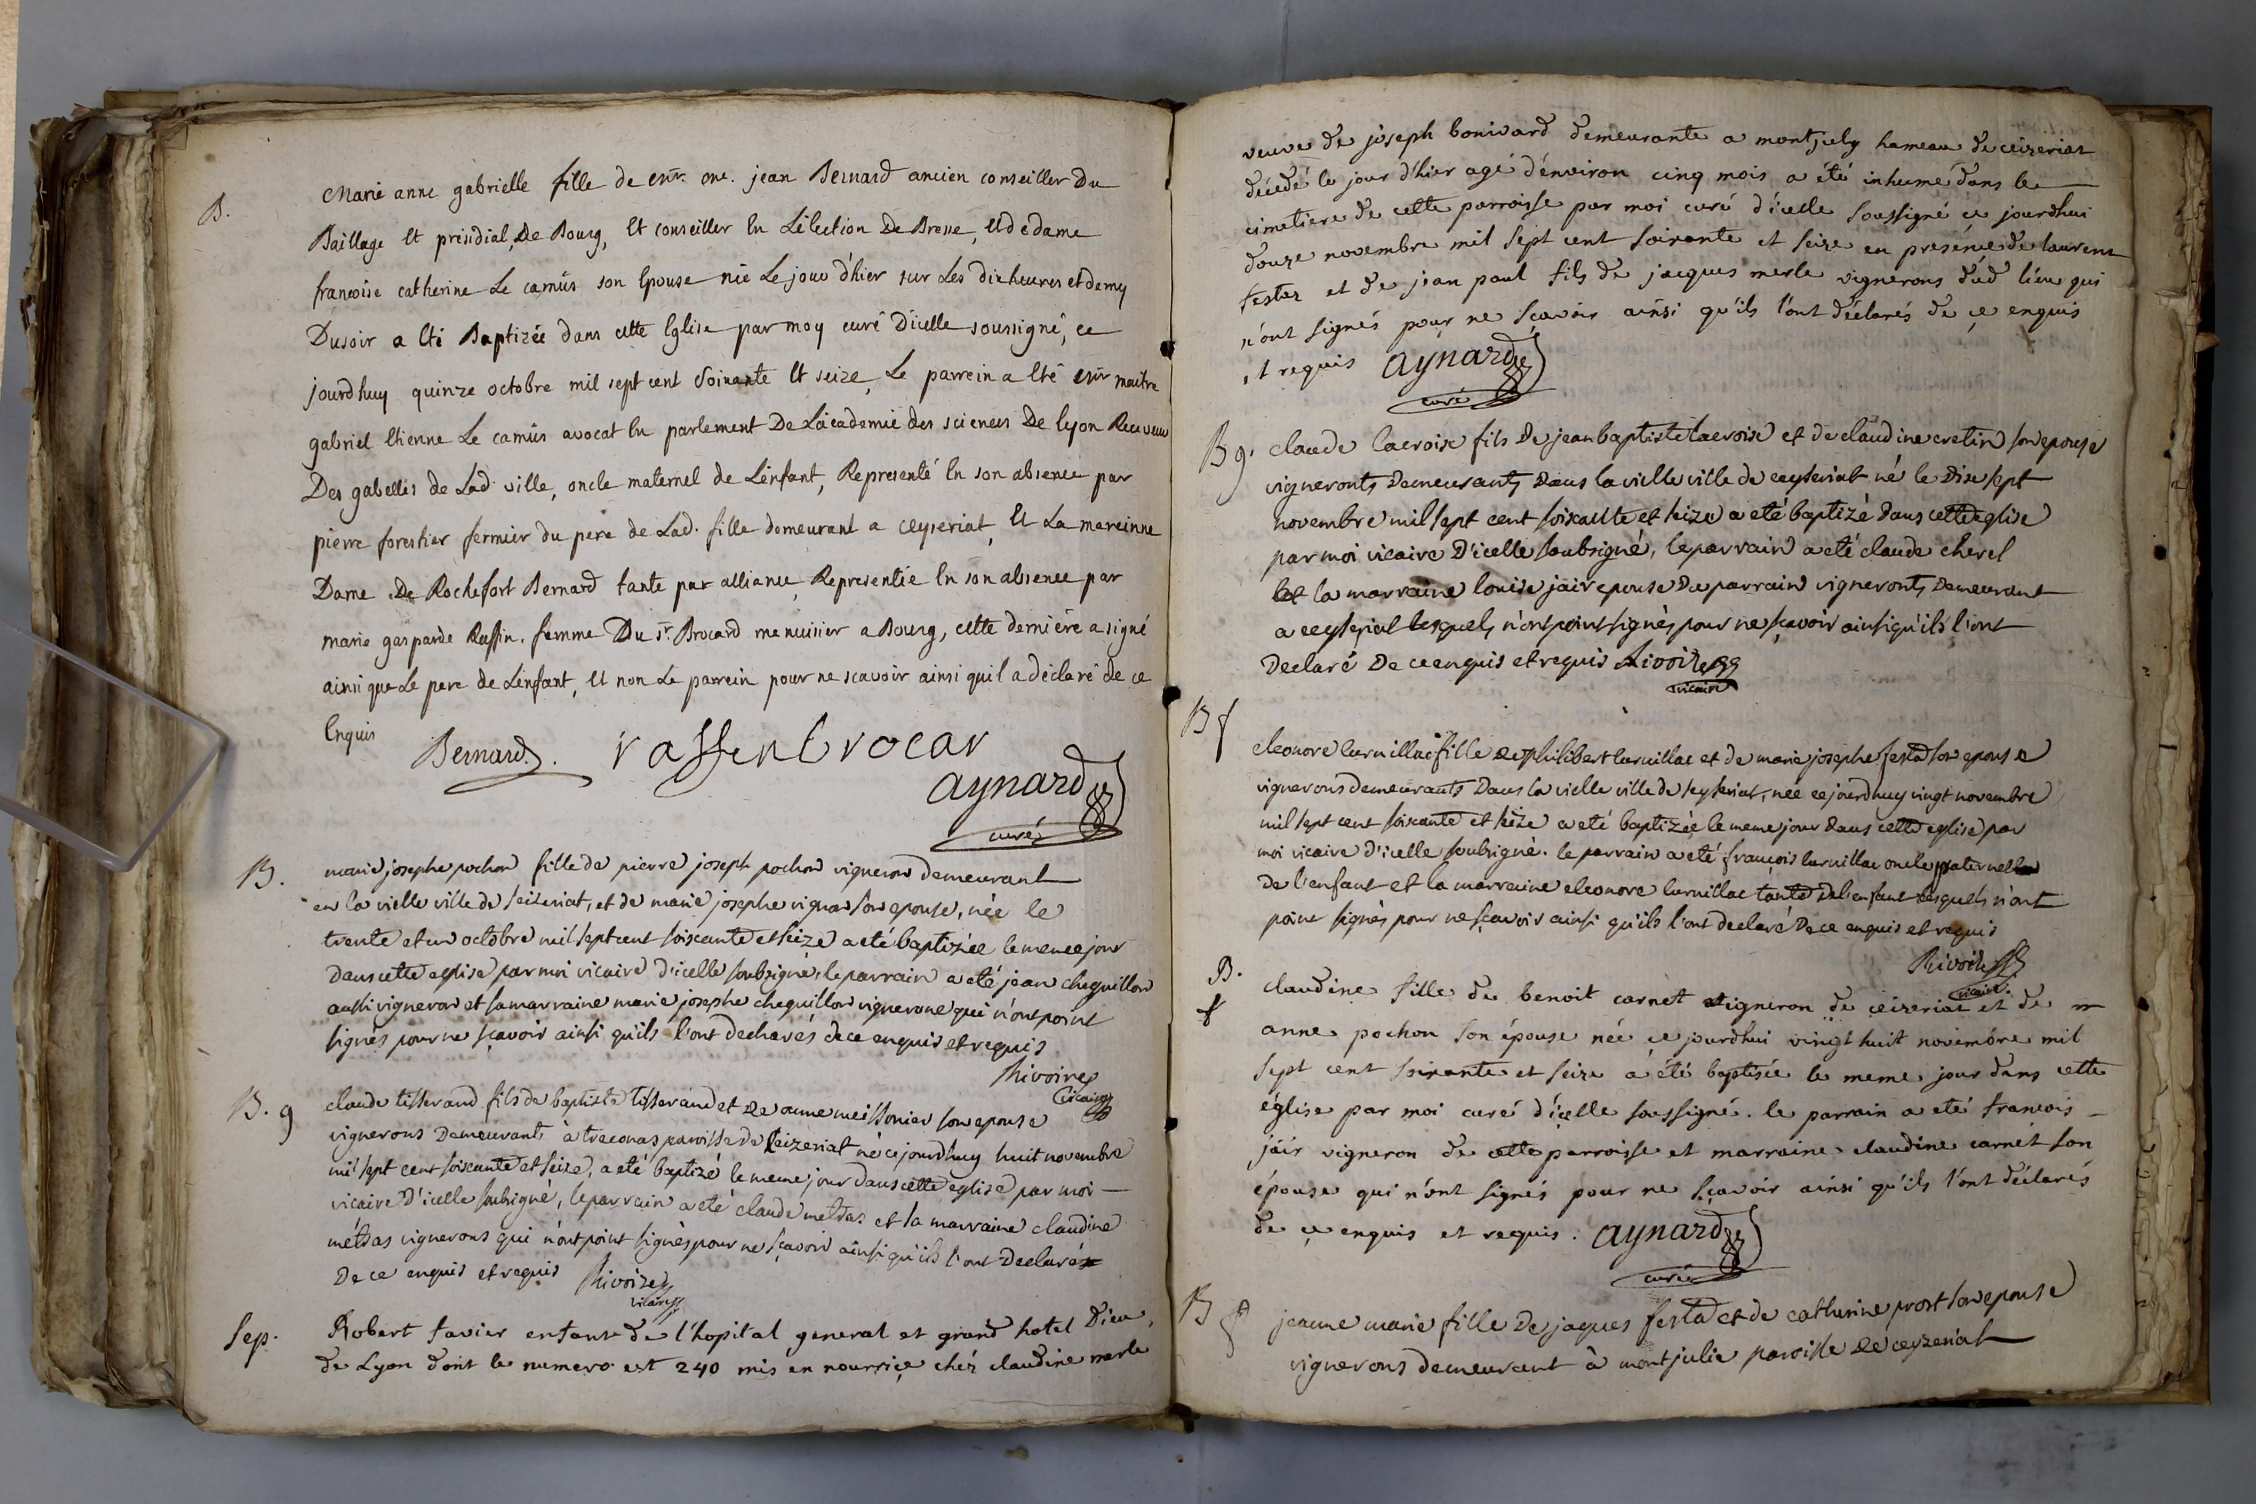 B.
Marie anne gabrielle fille de me. jean Bernard ancien conseiller Du
Baillage Et présidial, De Bourg, Et conseiller En L'élection De Bresse, Et de dame
francoise catherine Le camûs son Epouse née Le jour d'hier sur Les dix heures et demy
Du soir a Eté Baptizée dans cette Eglise par moy curé D'icelle soussigné, ce
jourdhuy quinze octobre mil sept cent Soixante Et seize, Le parrein a Eté maitre
gabriel Etienne Le camûs avocat En parlement De L'academie des sciences De lyon Receveur
Des gabelles de Lad. ville, oncle maternel de L'enfant, Representé En son absence par
pierre forestier fermier du pere de Lad. fille demeurant a Ceyseriat, Et La mareinne
Dame De Rochefort Bernard tante par alliance, Representée En son absence par
marie gasparde Raffin. femme Du sr. Brocard menuisier a Bourg, cette derniére a signé
ainsi que Le pere de L'enfant, Et non Le parrein pour ne scavoir ainsi qu'il a déclaré de ce
Enquis
Bernard. raffen brocar
aynard
curé
B.
marie josephe pochon fille de pierre joseph pochon vigneron demeurant
en la vielle ville de seizeriat, et de marie josephe vignas son epouse, née le
trente et un octobre mil sept cent soixante et seize a eté baptizée le meme jour
dans cette eglise par moi vicaire d'icelle soubsigné, le parrain a eté jean chequillon
aussi vigneron et sa marraine marie josephe chequillon vignerone qui n'ont point
signés pour ne sçavoir ainsi qu'ils l'ont declarés de ce enquis et requis
Rivoire
vicaire
B. g
claude tisserand fils de baptiste tisserand et de anne meissonier son epouse
vignerons demeurants à treconas paroisse de Ceizeriat né ce jourdhuy huit novembre
mil sept cent soixante et seize, a eté baptizé le meme jour dans cette eglise par moi
vicaire d'icelle soubsigné, le parrain a eté claude meltras et la marraine claudine
méltras vignerons qui n'ont point signés pour ne sçavoir ainsi qu'ils l'ont declaré
De ce enquis et requis Rivoire
vicaire
Sep.
Robert favier enfant de l'hopital general et grand hotel Dieu,
de Lyon dont le numero est 240 mis en nourriçe chéz claudine merle
veuve de joseph bonivard demeurante a montjuly hameau de ceizeriat
décédé le jour d'hier agé d'environ cinq mois a été inhumé dans le
cimetiere de cette parroisse par moi curé d'icelle soussigné ce jourdhui
douze novembre mil sept cent soixante et seize en presénce de laurent
festaz et de jean paul fils de jacques merle vignerons dud lieu qui
n'ont signés pour ne scavoir ainsi qu'ils l'ont déclarés de ce enquis
et requis aynard
curé
B g.
claude lacroix fils de jean baptiste lacroix et de claudine cretin son epouse
vigneronts demeurants dans la vielle ville de ceyseriat né le dix sept
novembre mil sept cent soixante et seize a eté baptizé dans cette eglise
par moi vicaire D'icelle soubsigné, le parrain a eté claude cherel
et la marraine louise jair epouse du parrain vigneronts demeurant
a ceyseriat lesquels n'ont point signés pour ne sçavoir ainsi qu'ils l'ont
Declaré De ce enquis et requis Rivoire
vicaire
B f
eleonore curnillac fille de philibert curnillac et de marie josephe festa son epouse
vignerons demeurants Dans la vielle ville de seyseriat, née ce jourdhuy vingt novembre
mil sept cent soixante et seize a eté baptizée le meme jour dans cette eglise par
moi vicaire d'icelle soubsigné. le parrain a eté françois curnillac oncle paternel
De l'enfant et la marraine eleonore curnillac tante de l'enfant lesquels n'ont
point signés pour ne sçavoir ainsi qu'ils l'ont declaré De ce enquis et requis
Rivoire
vicaire.
B.
f
claudine fille de benoit carnet vigneron de ceizeriat et de
anne pochon son épouse née ce jourdhui vingt huit novembre mil
sept cent soixante et seize a été baptisée le meme jour dans cette
église par moi curé d'icelle soussigné. le parrain a eté francois
jair vigneron de cette parroisse et marraine claudine carnét son
épouse qui n'ont signés pour ne sçavoir ainsi qu'ils l'ont déclarés
de ce enquis et requis. aynard
curé
B f
jeanne marie fille de jaques festa et de catherine prost son epouse
vignerons demeurant à montjulie paroisse de ceyzeriat